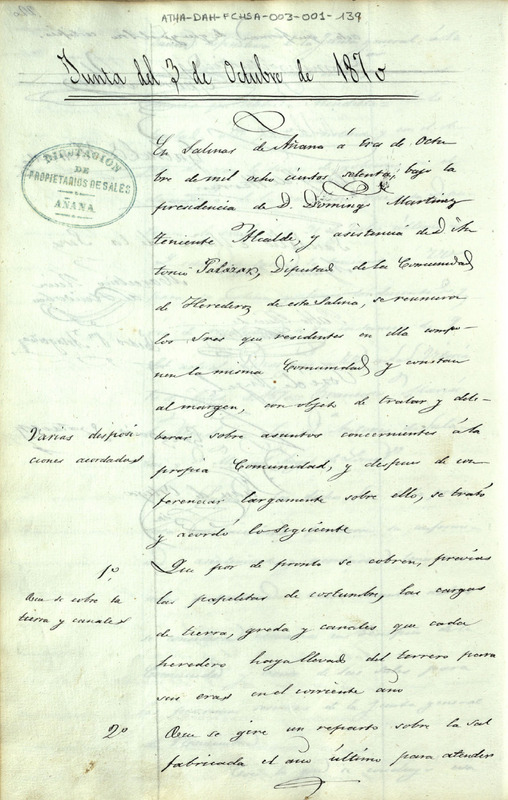 ATHA-DAH-FCHSA-003-001-139
Junta del 3 de Octubre de 1870
DIPUTACION
DE
PROPIETARIOS DE SALES
AÑANA
En Salinas de Añana á tres de Octu
bre de mil ocho cientos setenta, bajo la
presidencia de D. Domingo Martinez
teniente Alcalde, y asistencia de D. An
tonio Palázar, Diputado de la Comunidad
de Herederos de esta Salina, se reunieron
los Sres que residentes en ella compo-
nen la misma Comunidad y constan
al margen, con objeto de tratar y deli-
berar sobre asuntos concernientes á la
propia Comunidad, y despues de con
ferenciar largamente sobre ello, se trató
y acordó lo siguiente
Varias disposi
ciones acordadas
1º
Que se cobre la
tierra y canales
Que por de pronto se cobren, previas
las papeletas de costumbre, las cargas
de tierra, greda y canales que cada
heredero haya llevado del terrero para
sus eras en el corriente año
2º
Que se gire un reparto sobre la sal
fabricada el año último para atender